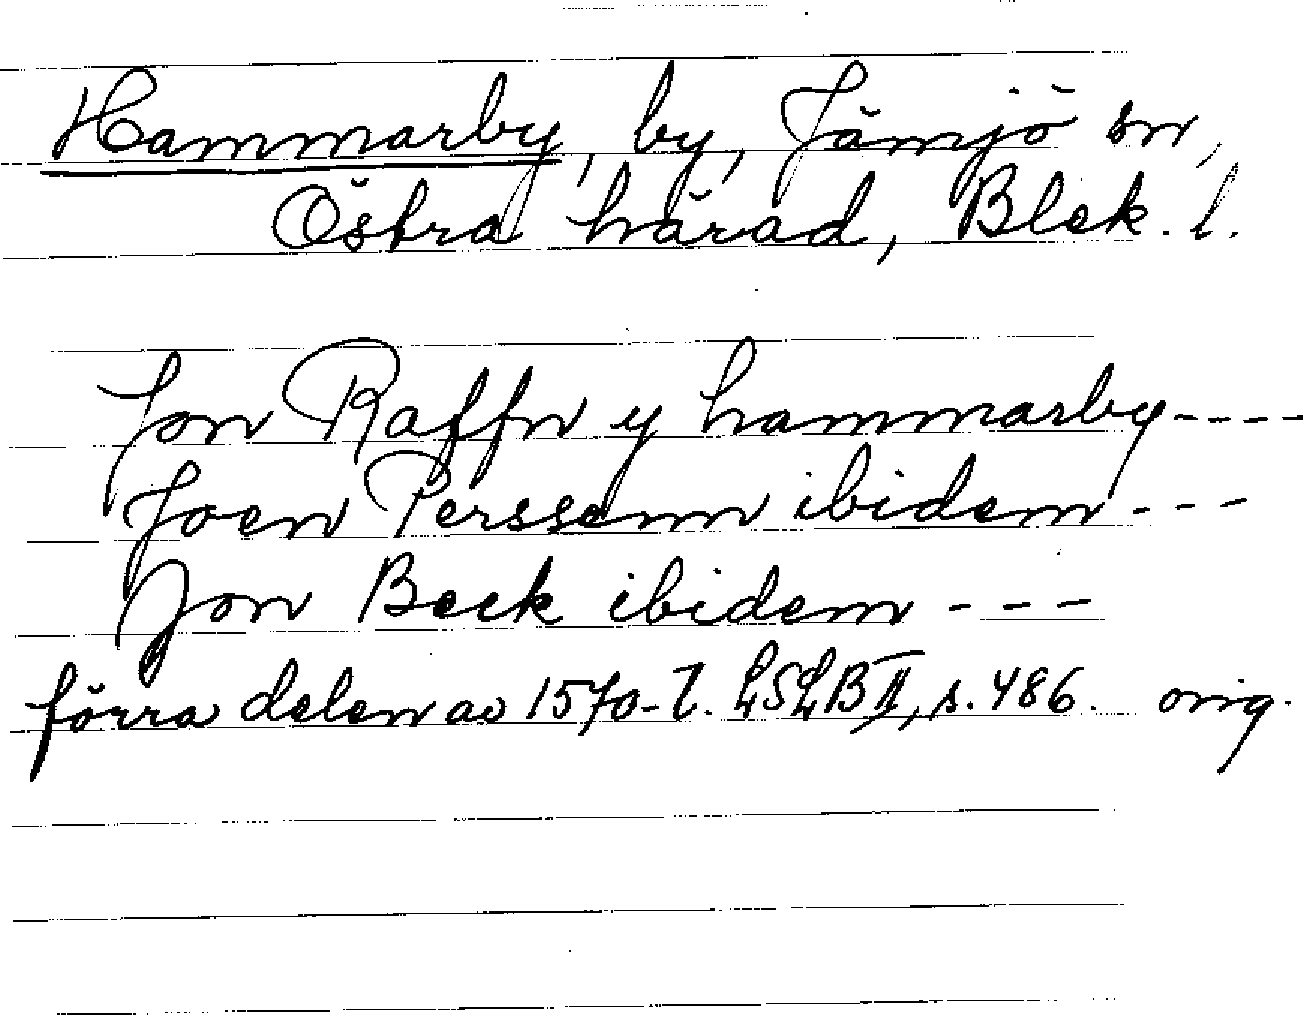 Hammarby, by, Jämjö sn,
Östra härad, Blek. l.
Jon Raffn y hammarby----
Joen Perssenn ibidem---
Jon Beck ibidem---
förra delen av 1570-t. LSLB II, s. 486. orig.